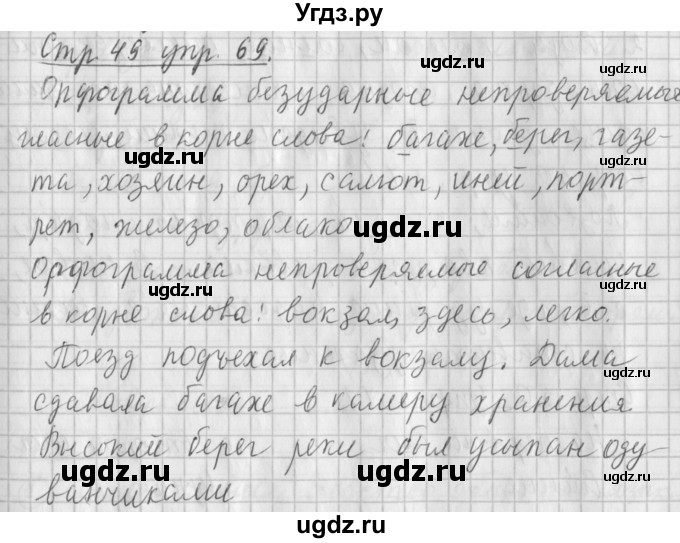 Угдз.ру
Стр. 49 упр. 69.
Орфограмма безударные непроверяемые
гласные в корне слова: багаж, берег, газе-
та, хозяин, орех, салют, иней, порт-
рет, железо, облако
Орфограмма непроверяемые согласные
в корне слова: вокзал, здесь, легко.
Поезд подъехал к вокзалу. Дама
сдавала багаж в камеру хранения.
Высокий берег реки был усыпан оду-
ванчиками
ugdz.ru
ugdz.ru
ugdz.ru
ugdz.ru
ugdz.ru
ugdz.ru
ugdz.ru
ugdz.ru
ugdz.ru
ugdz.ru
ugdz.ru
ugdz.ru
ugdz.ru
ugdz.ru